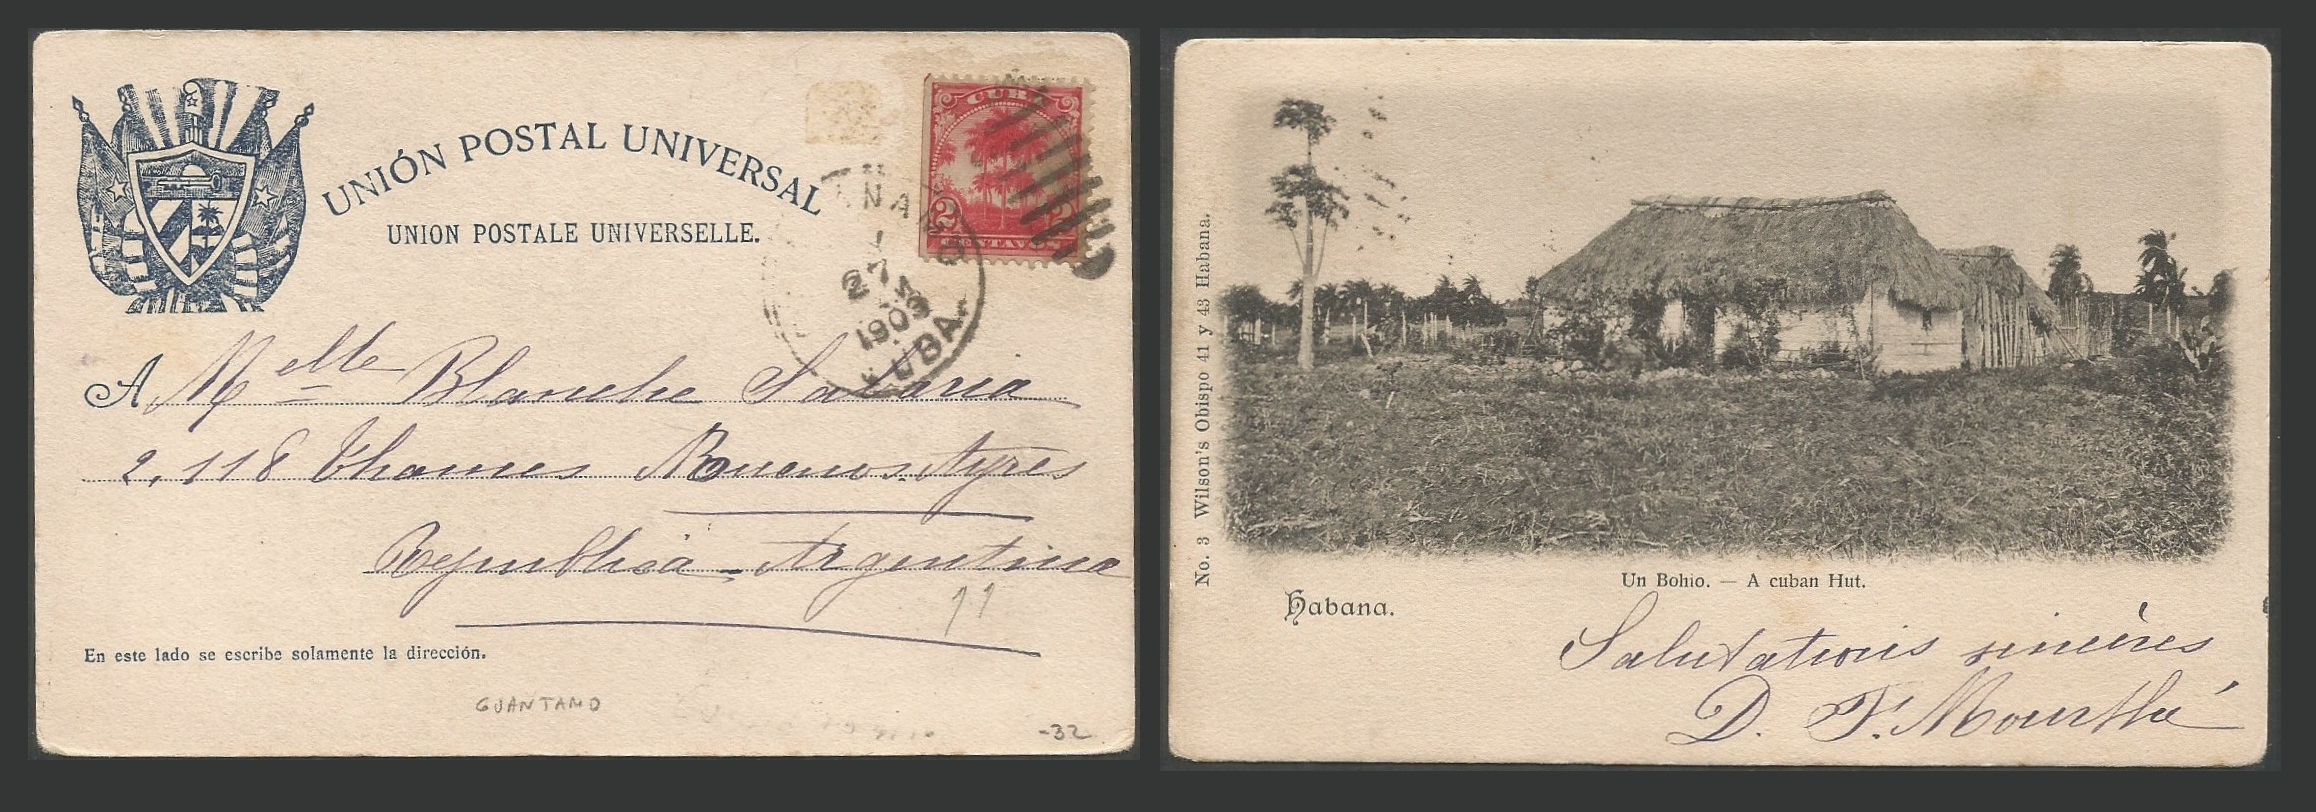 UNIÓN POSTAL UNIVERSAL
UNION POSTALE UNIVERSELLE.
CUBA
2 2
CENTAVOS
27
1903
CUBA.
A Melle Blanche
2,118 Thames Buenos. Ayres
Republica Argentina
11
En este lado se escribe solamente la dirección.
GUANTAMO
-32
No. 3 Wilson's Obispo 41 y 43 Habana.
Un Bohio. — A cuban Hut.
Habana.
Salutations sincères
D. F. Mourthé